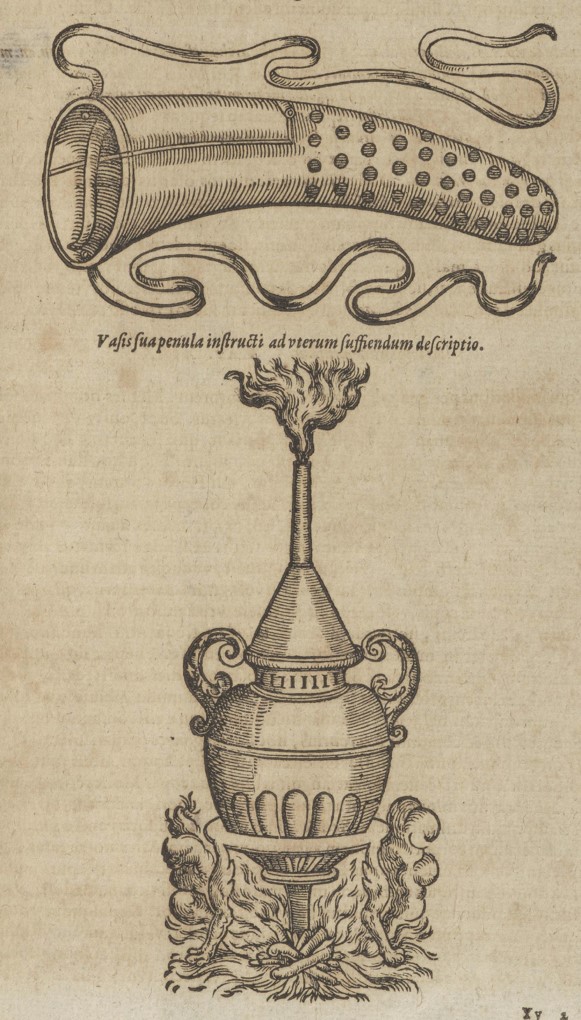 Vasis sua penula instructi ad vterum suffiendum descriptio.
Yy 2